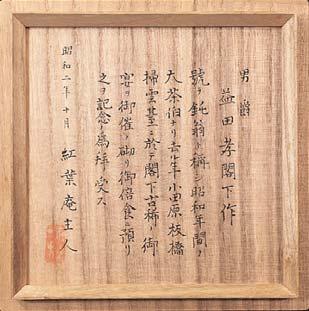 男爵
益田孝閣下作
號ヲ鈍翁ト稱シ昭和年間ノ
大茶伯ナリ去年小田原板橋
掃雲臺ニ於テ閣下古稀ノ御
宴ヲ御催ノ砌リ御倍食ニ預リ
之ヲ記念ノ為拝受ス
昭和二年十月
紅葉庵主人